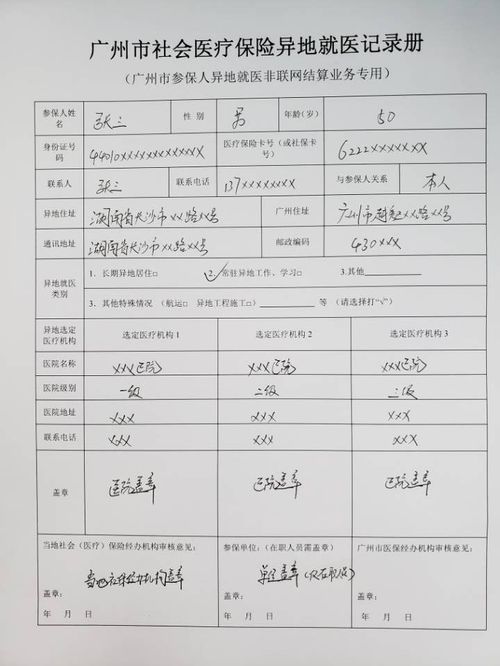 广州市社会医疗保险异地就医记录册
（广州市参保人异地就医非联网结算业务专用）
参保人姓名 张三 性 别 男 年龄(岁) 50
身份证号码 44010xxxxxxxxxxxxx 医疗保险卡号（或社保卡号） 6222xxxxxxx
联系人 张三 联系电话 137xxxxxxxx 与参保人关系 本人
异地住址 湖南省长沙市xx路xx号 广州住址 广州市越秀区xx路xx号
通讯地址 湖南省长沙市xx路xx号 邮政编码 430xxx
异地就医类别 1、长期异地居住□ 2、✓常驻异地工作、学习□ 3.其他
3、其他特殊情况（航运□ 异地工程施工□） 等（请选择打“√”）
异地选定医疗机构 选定医疗机构 1 选定医疗机构 2 选定医疗机构 3
医院名称 xxx医院 xxx医院 xxx医院
医院级别 一级 二级 三级
医院地址 xxx xxx xxx
联系电话 xxx xxx xxx
盖章 医院盖章 医院盖章 医院盖章
当地社会（医疗）保险经办机构审核意见： 参保单位：（在职人员需盖章） 广州市医保经办机构审核意见：
当地社保经办机构盖章 单位盖章（仅在职人员）
盖章： 盖章： 盖章：
年 月 日 年 月 日 年 月 日